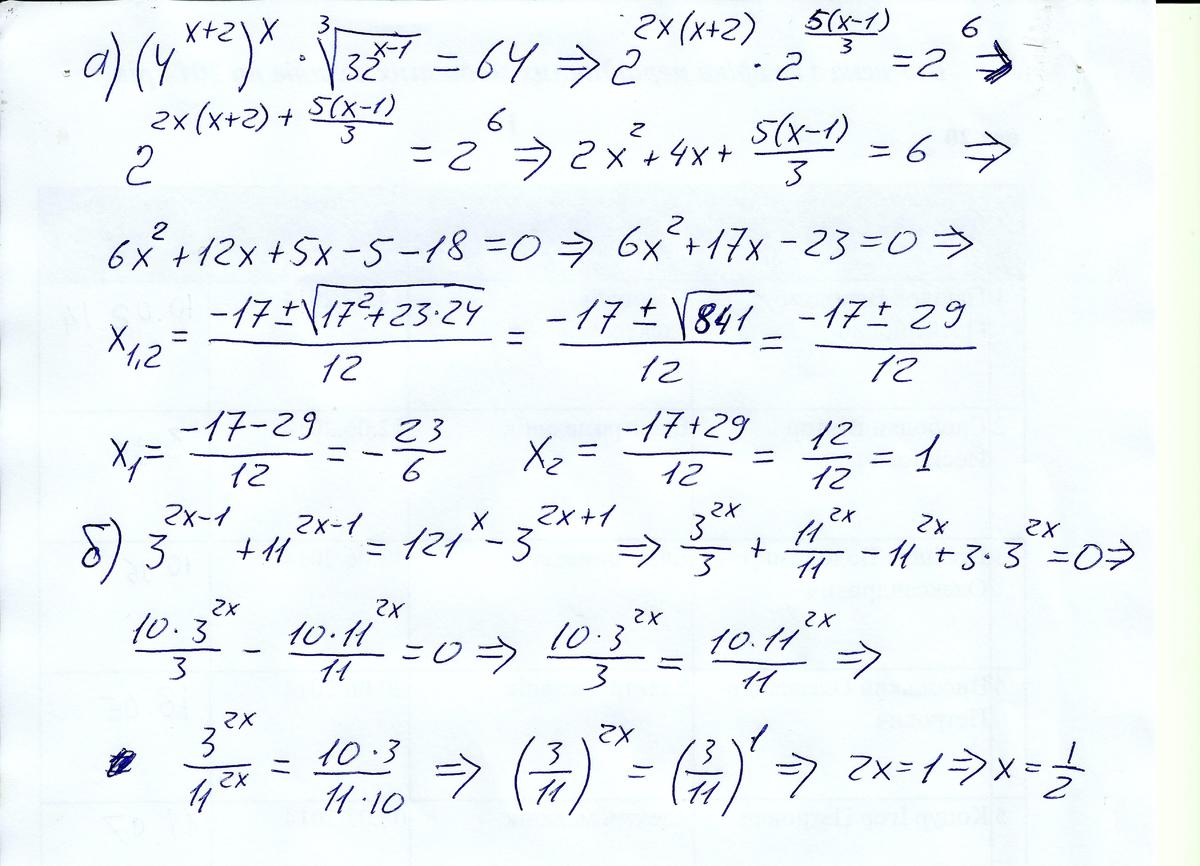 а) (4^{x+2})^x · ∛(32^{x-1}) = 64 ⇒ 2^{2x(x+2)} · 2^{5(x-1)/3} = 2^6 ⇒
2^{2x(x+2) + 5(x-1)/3} = 2^6 ⇒ 2x^2 + 4x + 5(x-1)/3 = 6 ⇒
6x^2 + 12x + 5x - 5 - 18 = 0 ⇒ 6x^2 + 17x - 23 = 0 ⇒
x_{1,2} = (-17 ± √(17^2 + 23·24))/12 = (-17 ± √841)/12 = (-17 ± 29)/12
x_1 = (-17 - 29)/12 = -23/6 x_2 = (-17 + 29)/12 = 12/12 = 1
б) 3^{2x-1} + 11^{2x-1} = 121^x - 3^{2x+1} ⇒ 3^{2x}/3 + 11^{2x}/11 - 11^{2x} + 3·3^{2x} = 0 ⇒
10·3^{2x}/3 - 10·11^{2x}/11 = 0 ⇒ 10·3^{2x}/3 = 10·11^{2x}/11 ⇒
3^{2x}/11^{2x} = 10·3/11·10 ⇒ (3/11)^{2x} = (3/11)^1 ⇒ 2x = 1 ⇒ x = 1/2